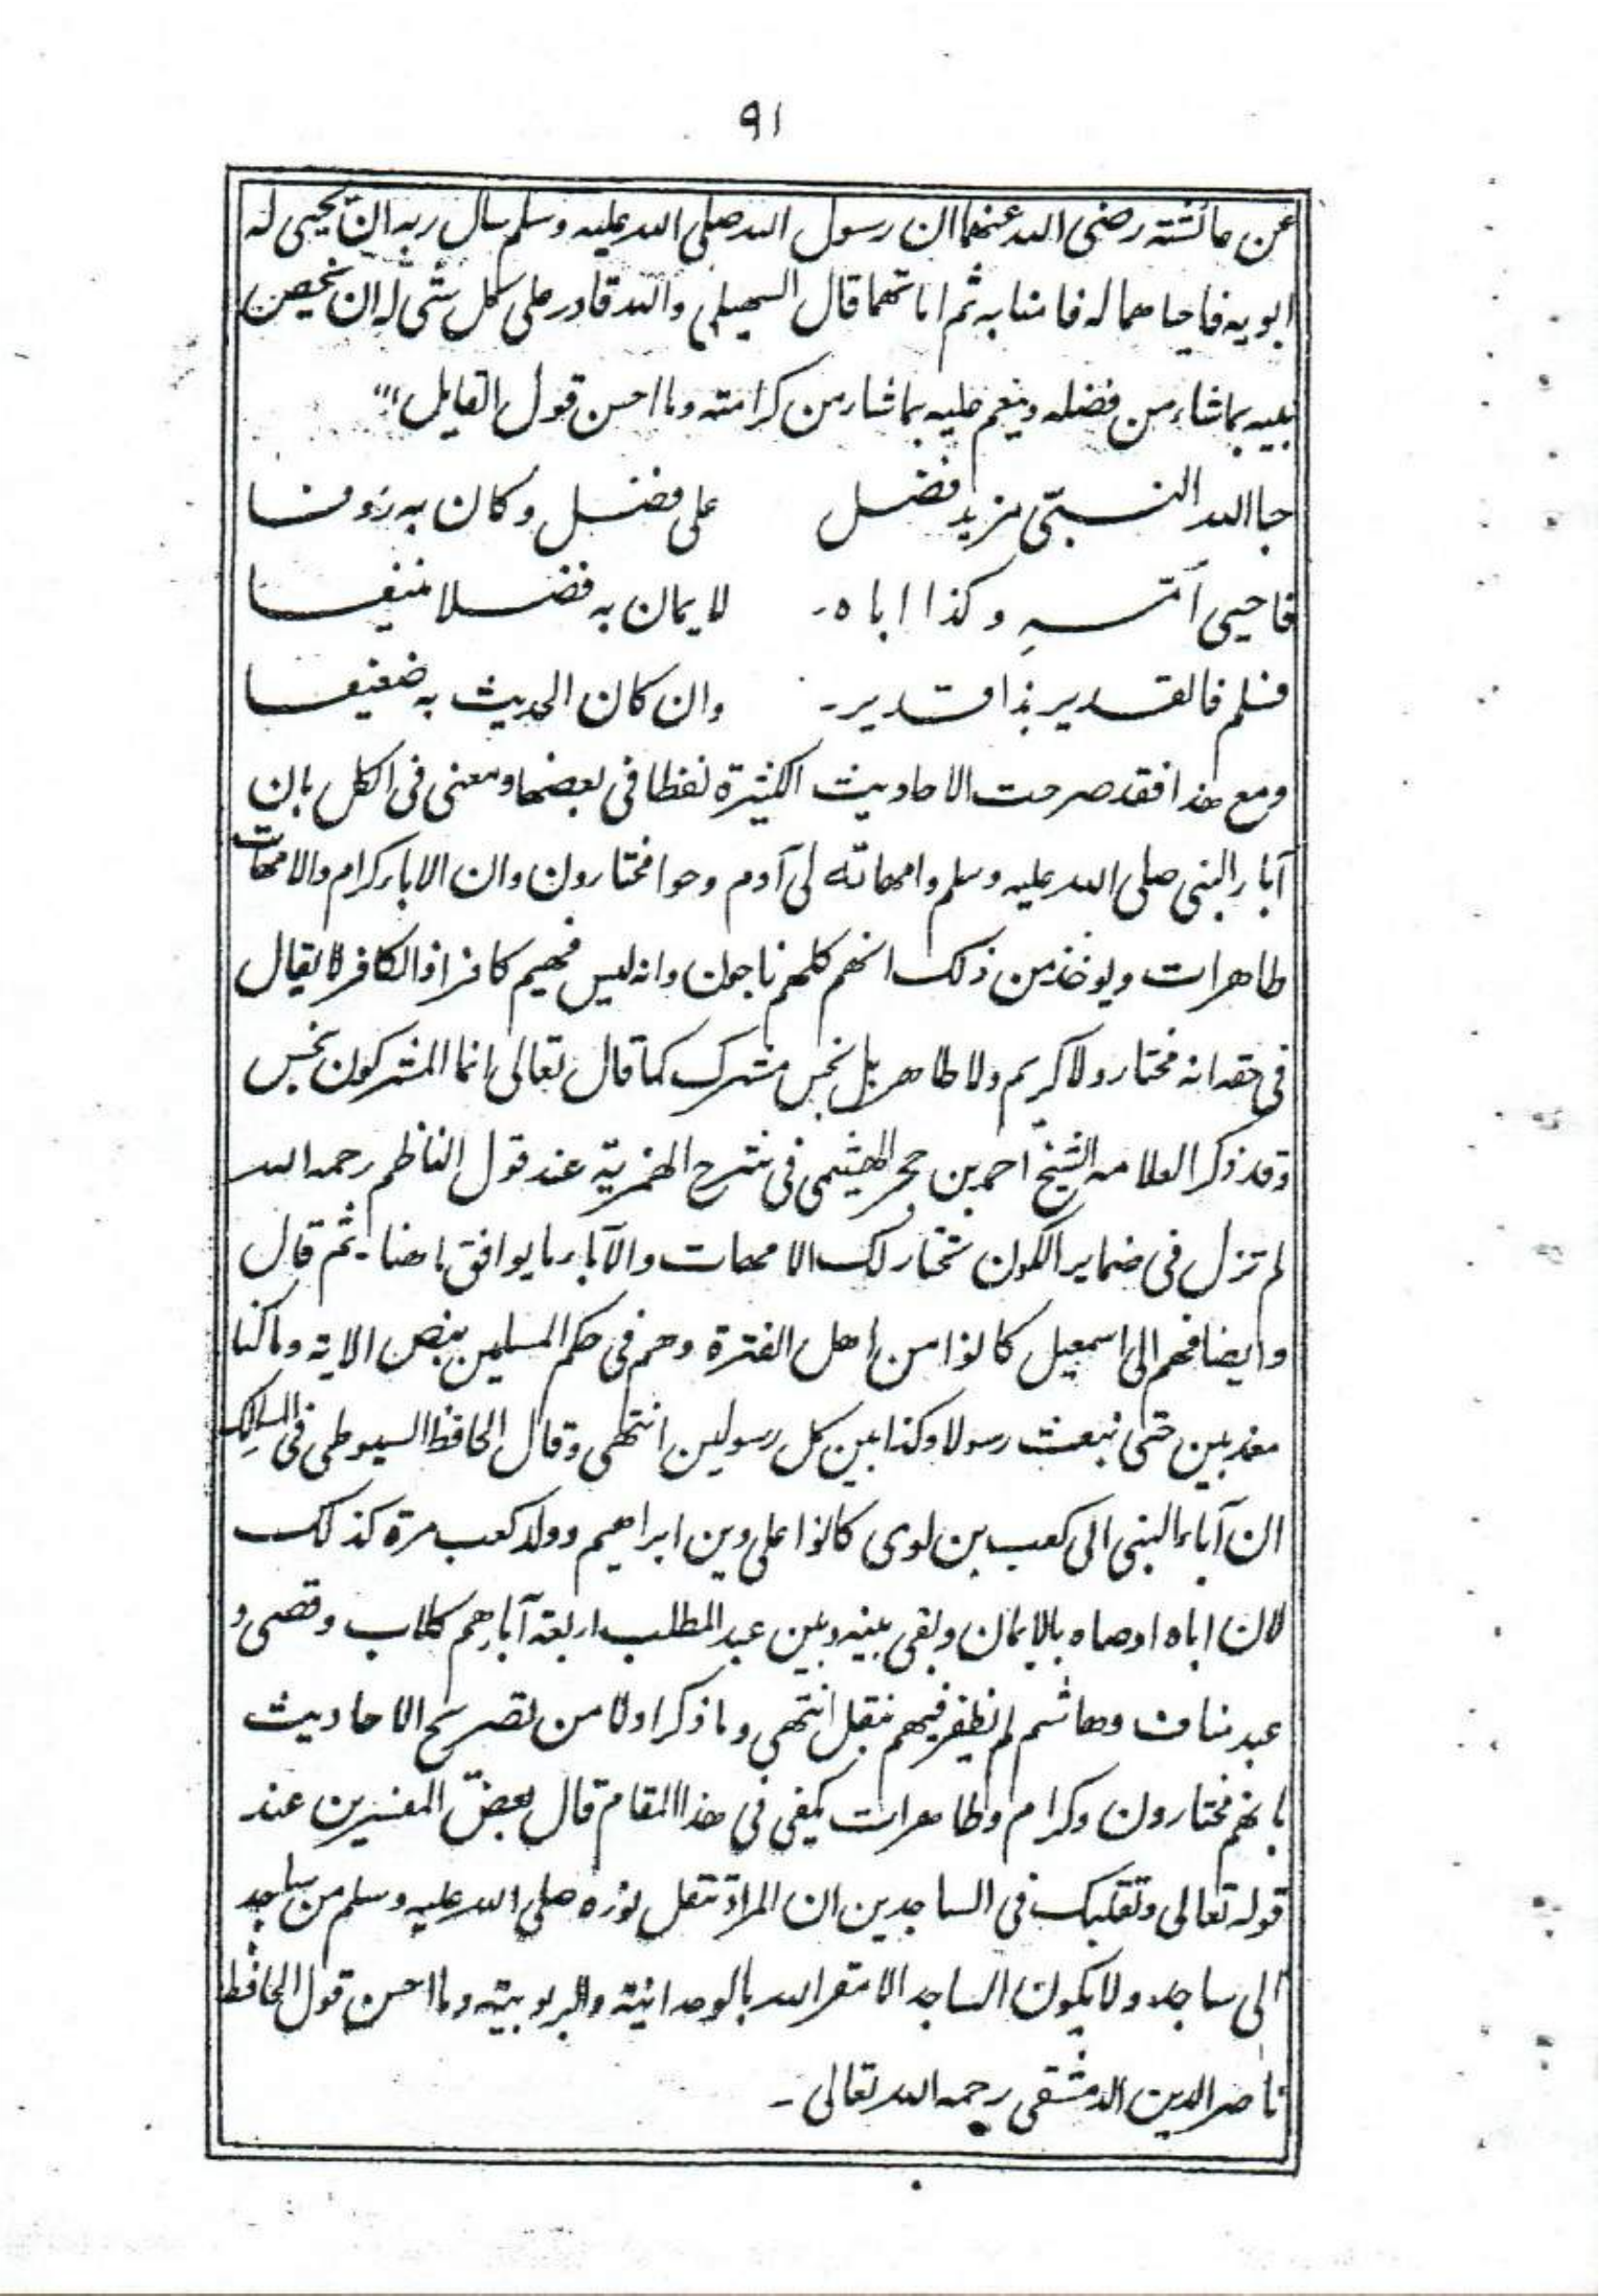 ٩١
عن عائشته رضى الله عنهما ان رسول الله صلى الله عليه وسلم سال ربه ان يحيى له
ابويه فاحيا هما له فامنا به ثم اماتهما قال السهيلى والله قادر على كل شى له ان يخص
نبيه بماشاء من فضله وينعم عليه بماشاء من كرامته وما احسن قول القايل
حبا الله النبىّ مزيد فضل على فضل وكان به رؤفا
فاحيى اُمّهِ وكذا اباه۔ لايمان به فضلا منيفا
فسلم فالقدير بذا قدير۔ وان كان الحديث به ضعيفا
ومع هذا فقد صرحت الاحاديث الكثيرة لفظا فى بعضها ومعنى فى الكل بان
آباء النبى صلى الله عليه وسلم وامهاته لى آدم وحوا مختارون وان الاباء كرام والامهات
طاهرات ويوخذ من ذلك انهم كلهم ناجون وانه ليس فيهم كافر اذ الكافر لا يقال
فى حقه انه مختار ولا كريم ولا طاهر بل نجس مشرك كما قال تعالى انما المشركون نجس
وقد ذكر العلامه الشيخ احمد بن حجر الهيثمى فى شرح الهمزيّة عند قول الناظم رحمه الله
لم تزل فى ضماير الكون تختار لك الامهات والآباء ما يوافق ما هنا۔ ثم قال
وايضا فهم الى اسمعيل كانوا من اهل الفترة وهم فى حكم المسلمين بنص الاية وما كنا
معذبين حتى نبعث رسولا وكذا بين كل رسولين انتهى وقال الحافظ السيوطى فى المسالك
ان آباء النبى الى كعب بن لوى كانوا على دين ابراهيم وولد كعب مرة كذلك
لان اباه اوصاه بالايمان وبقى بينه وبين عبد المطلب اربعة آباء هم كلاب وقصى و
عبد مناف وهاشم لم نظفر فيهم بنقل انتهى وما ذكر اولا من تصريح الاحاديث
بانهم مختارون وكرام وطاهرات يكفى فى هذا المقام قال بعض المفسرين عند
قوله تعالى وتقلبك فى الساجدين ان المراد تنقل نوره صلى الله عليه وسلم من ساجد
الى ساجد ولا يكون الساجد الا مقر الله بالوحدانية والربوبيته وما احسن قول الحافظ
ناصر الدين الدمشقى رحمه الله تعالى۔